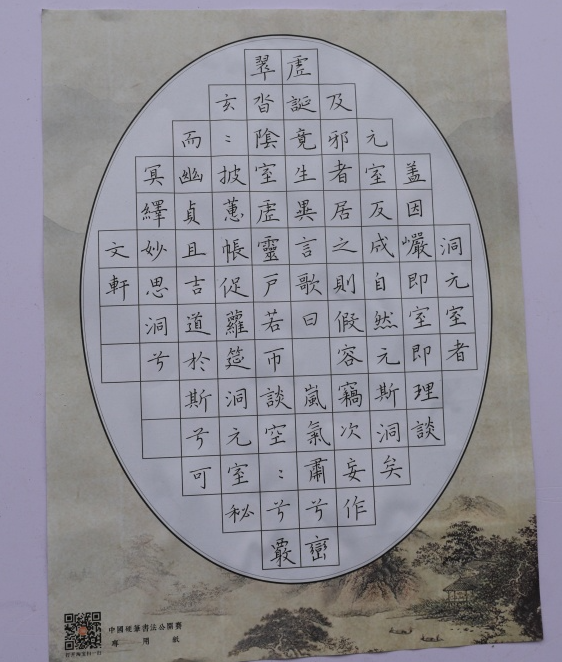 洞元室者
盖因巗即室即理談
元室反成自然元斯洞矣
及邪者居之則假容竊次妄作
虛誕竟生異言歌曰嵐氣肅兮巒
翠沓陰室虛靈戶若帀談空:兮覈
玄:披蕙帳促蘿筵洞元室秘
而幽貞且吉道於斯兮可
冥繹妙思洞兮
文軒
中國硬筆書法公開賽
專用紙